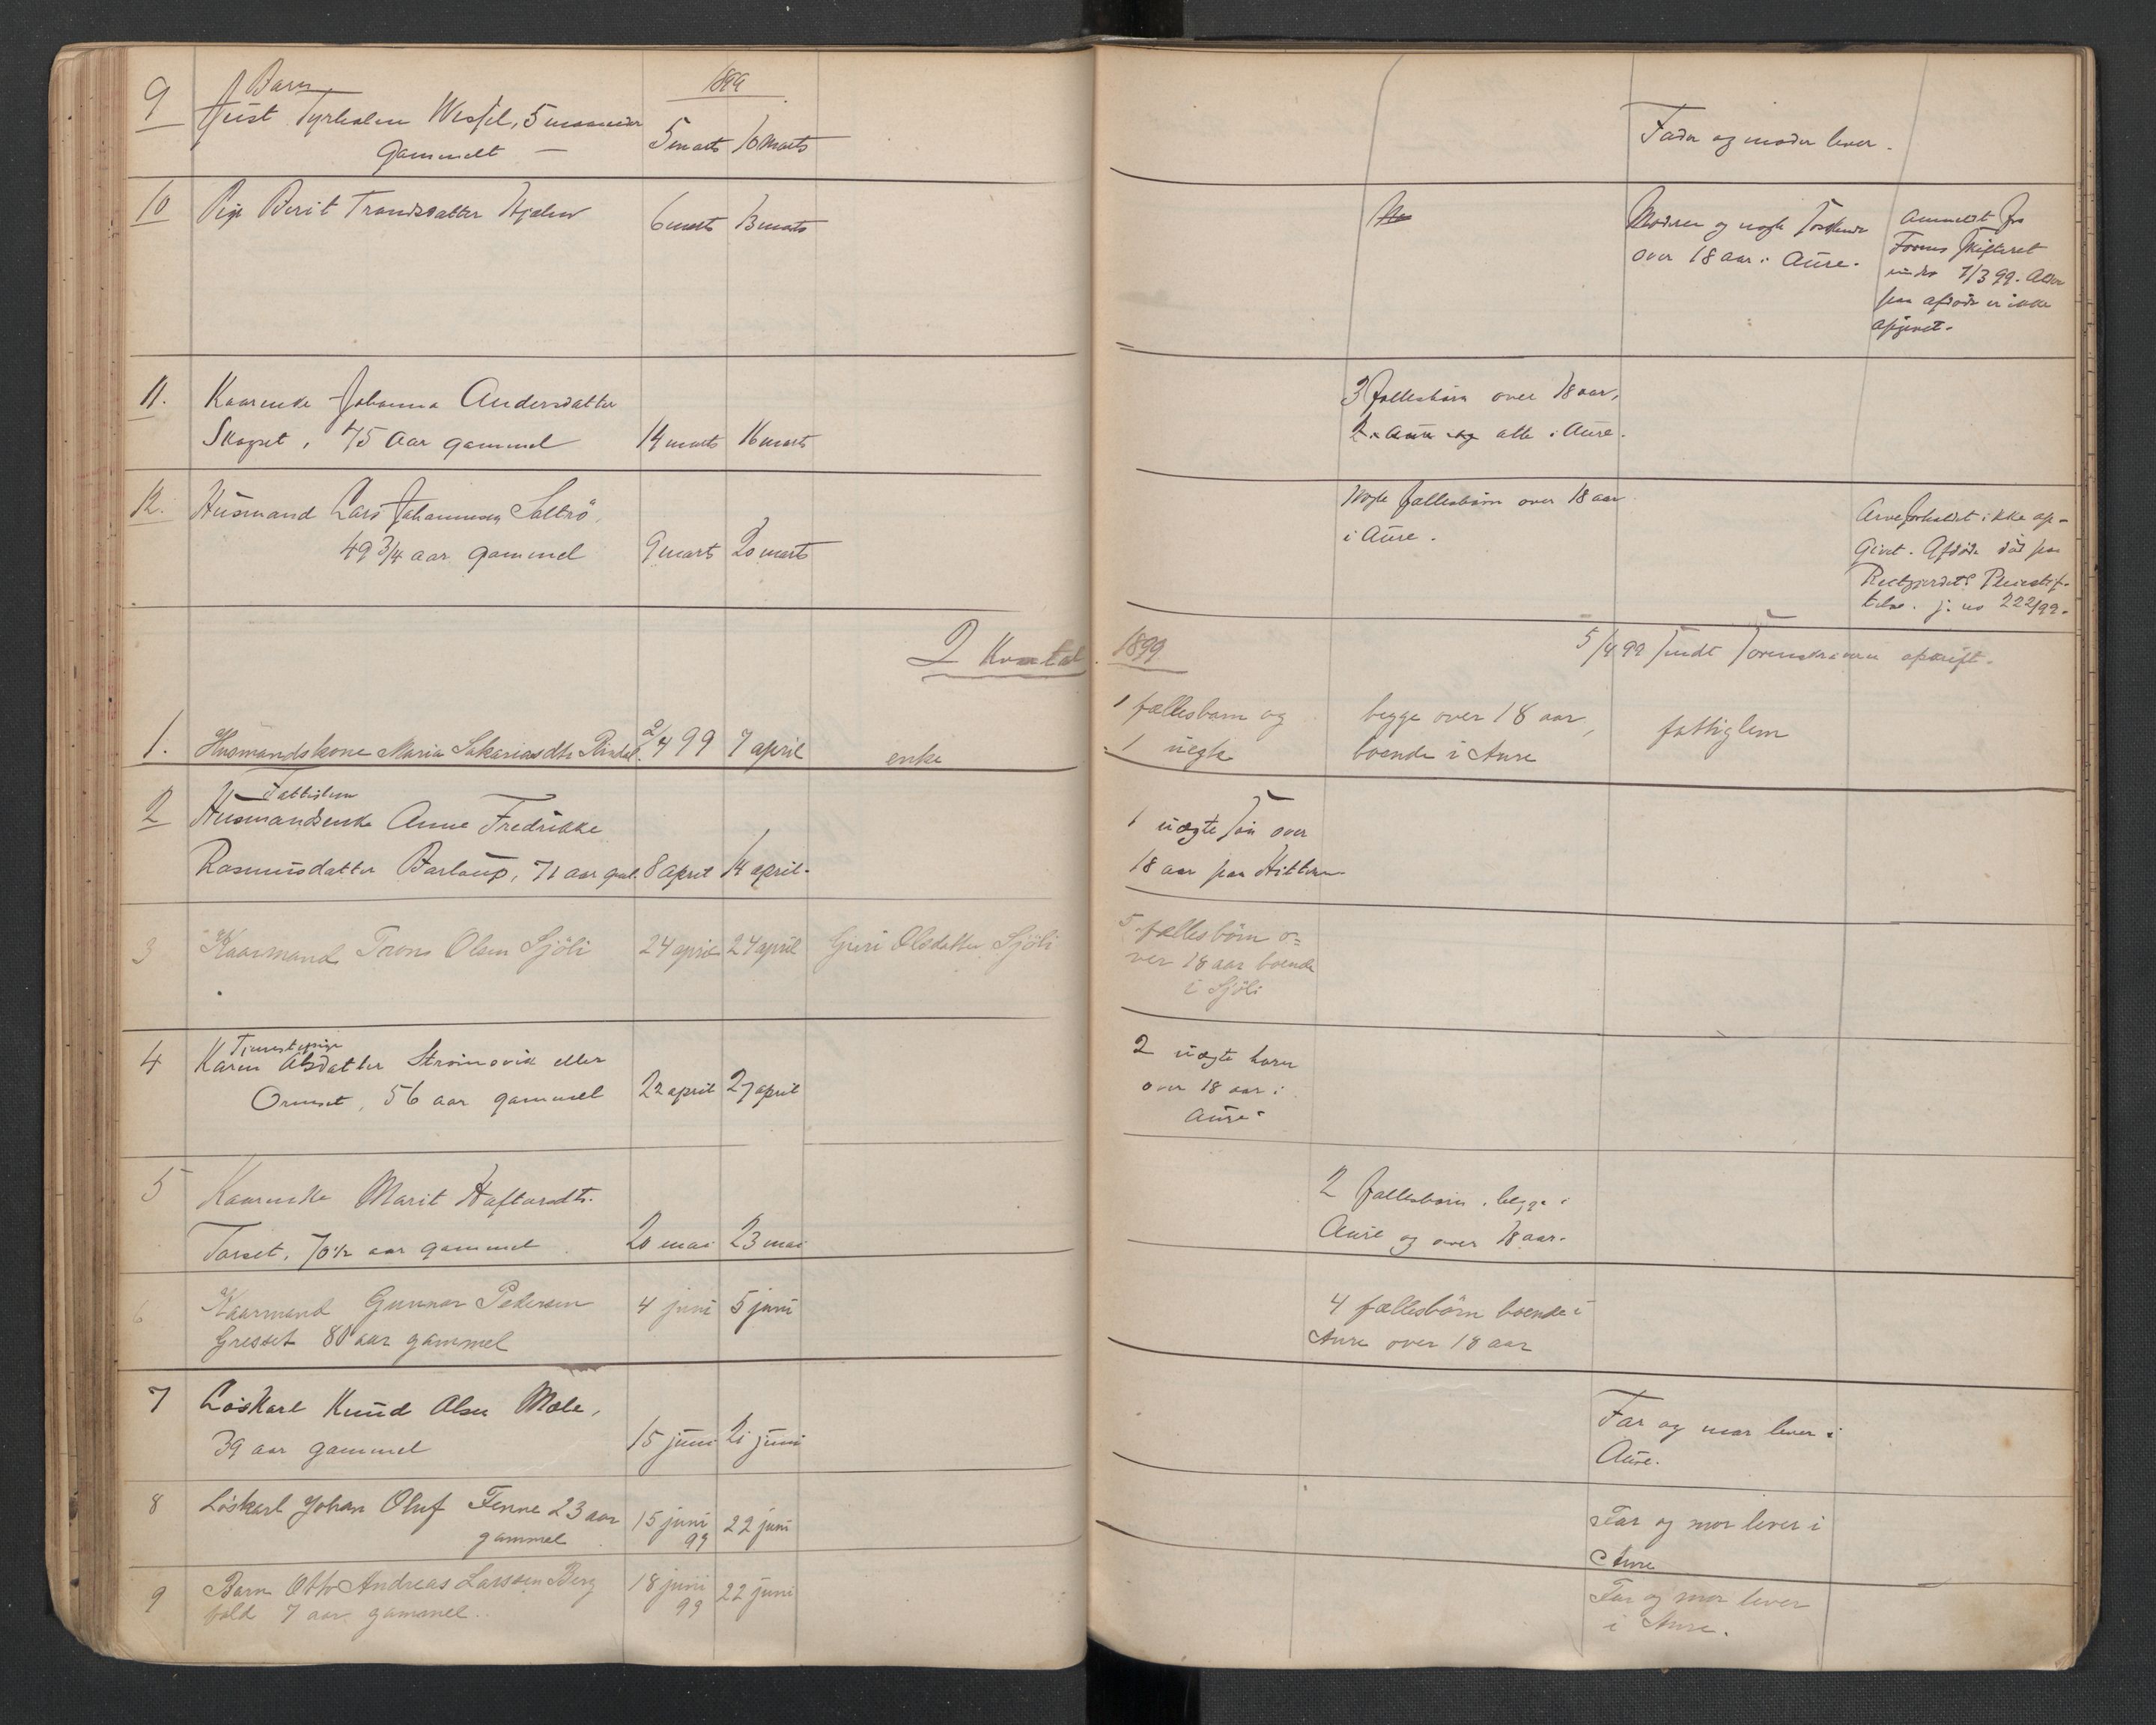 1899
9 Barn
Just Tyrholm Wessel, 5 maaneder
gammelt — 5 marts 10 marts Fader og moder lever.
10 Pige Berit Trondsdatter 6 marts 13 marts Moderen og nogle Søskende Anmeldt fra
over 18 aar i Aure. Skifteret
7/3 99. Alder
paa afdøde er ikke
opgivet.
11. Kaarenke Johanna Andersdatter 3 fællesbørn over 18 aar,
Skogset, 75 aar gammel 14 marts 16 marts 2 i Aure og alle i Aure.
12. Husmand Lars Johannesen Saltrø, Nogle fællesbørn over 18 aar Arveforholdet ikke op-
49 3/4 aar gammel 9 marts 20 marts i Aure. givet. Afdøde død paa
Reitgjerdets Pleiestif-
telse. j. no 222/99.
2 Kvartal 1899 5/4 99 sendt Sorenskriveren opskrift.
1. Husmandskone Maria Sakariasdtr 2/4 99 7 april enke 1 fællesbarn og begge over 18 aar, fattiglem
1 uegte boende i Aure
Fattiglem
2 Husmandsenke Anne Fredrikke 1 uægte søn over
Rasmusdatter Barlaup, 71 aar gml. 8 april 14 april. 18 aar paa Hitteren
3 Kaarmand Trons Olsen Sjøli 24 april 24 april Guri Olsdatter Sjöli 5 fællesbörn o=
ver 18 aar boende
i Sjöli
Tjenestepige
4 Karen Olsdatter Strømsvik eller 2 uægte barn
Ormset, 56 aar gammel 22 april 27 april over 18 aar i
Aure
5 Kaarenke Marit Haftorsdtr. 2 fællesbørn, begge i
Torset, 70 1/2 aar gammel 20 mai 23 mai Aure og over 18 aar.
6 Kaarmand Gunnar Pedersen 4 juni 5 juni 4 fællesbörn boende i
Gresset 80 aar gammel Aure over 18 aar
7 Løskarl Knud Olsen Mæle, Far og mor lever i
39 aar gammel 15 juni 21 juni Aure.
8 Löskarl Johan Oluf Fenne 23 aar 15 juni 22 juni Far og mor lever i
gammel 99 Aure
9 Barn Otto Andreas Larssen Berg 18 juni 22 juni Far og mor lever
fald 7 aar gammel. 99 i Aure.